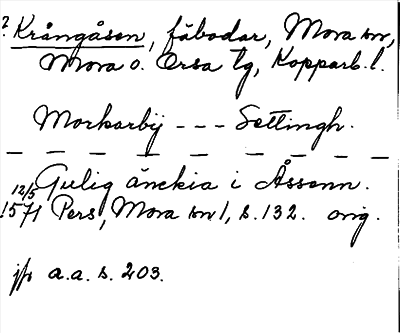 ? Krångåsen, fäbodar, Mora sn,
Mora o. Orsa tg, Kopparb. l.
Morkarby - - - Settingh.
Gulig änckia i Åssenn.
12/5 1571 Pers, Mora sn 1, s. 132. orig.
jfr a.a. s. 203.